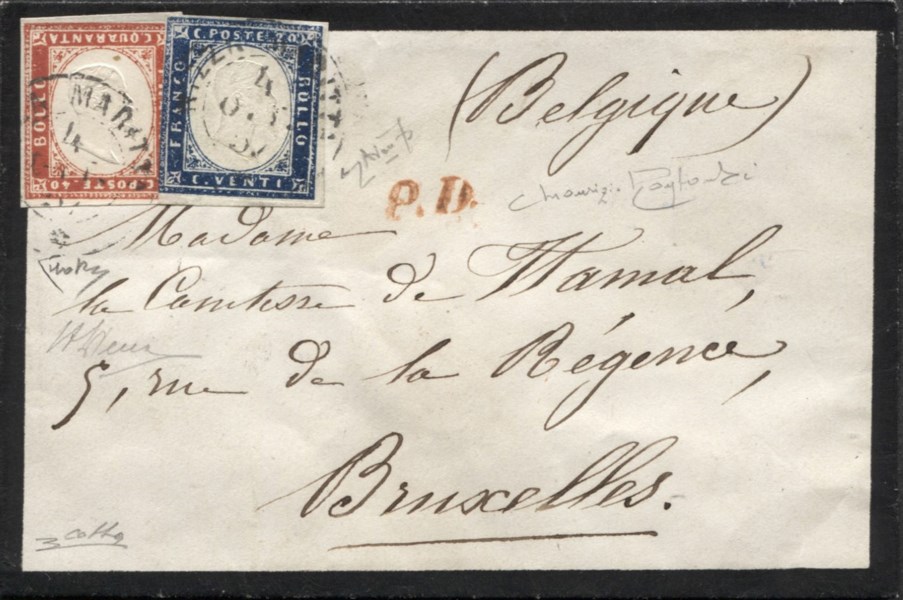 C. QUARANTA
BOLLO
C. POSTE 40
C. POSTE. 20
FRANCO
BOLLO
C. VENTI
(Belgique)
P.D.
Madame
la Comtesse de Hamal,
5, rue de la Régence,
Bruxelles.